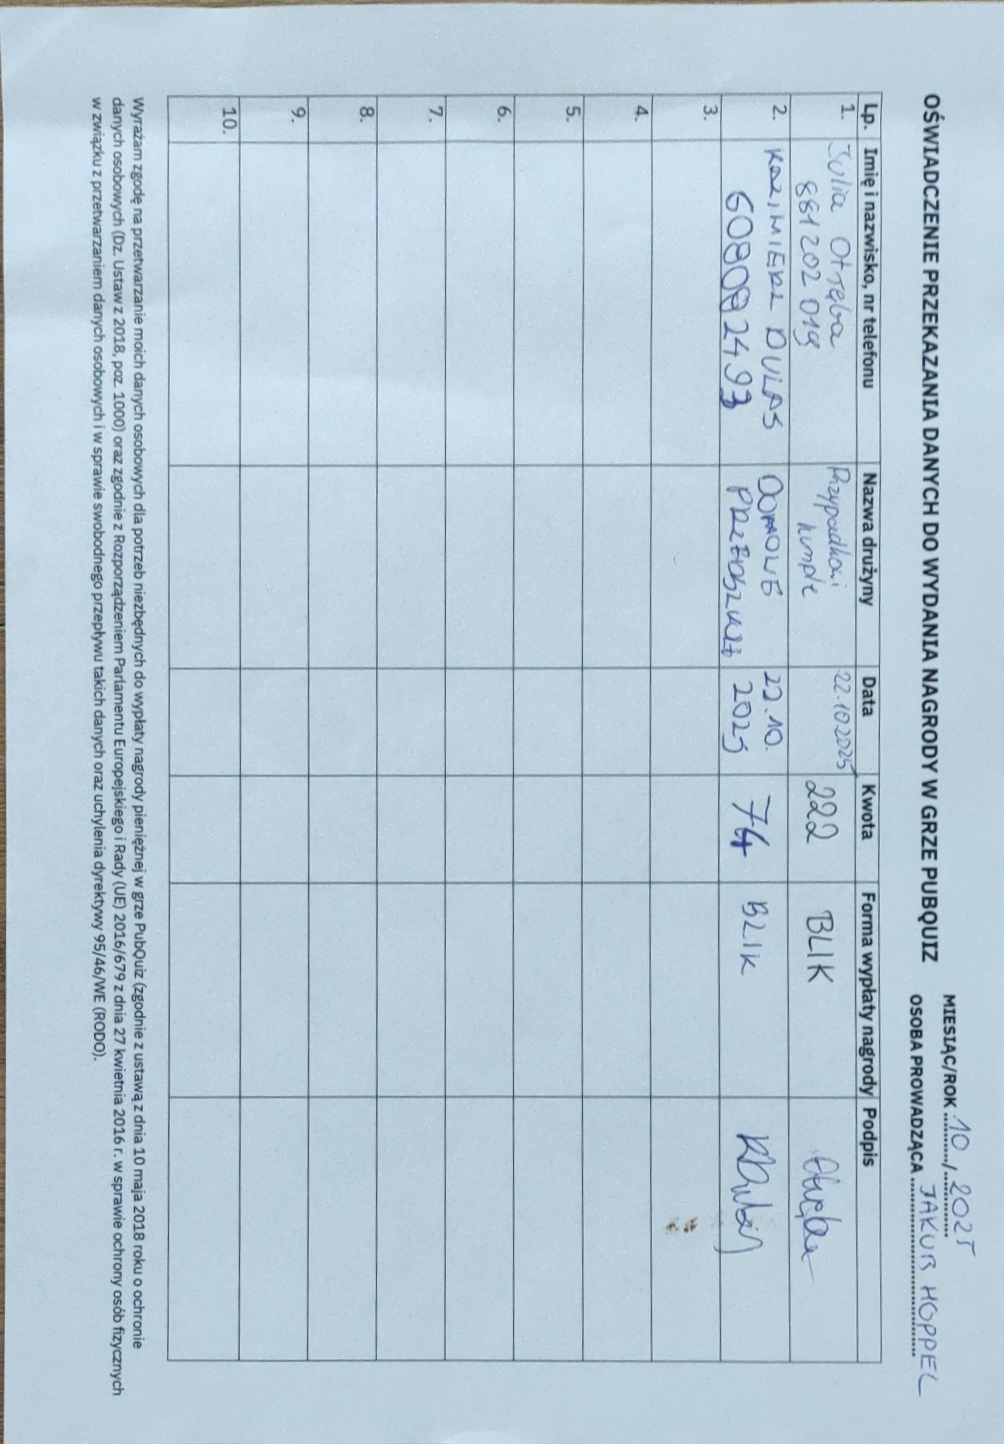 OŚWIADCZENIE PRZEKAZANIA DANYCH DO WYDANIA NAGRODY W GRZE PUBQUIZ
MIESIĄC/ROK 10 / 2025
OSOBA PROWADZĄCA JAKUB HOPPEL
Lp. Imię i nazwisko, nr telefonu Nazwa drużyny Data Kwota Forma wypłaty nagrody Podpis
1. Julia Otręba Przypadkowi 22.10.2025 222 BLIK
881 202 019 kumple
2. KAZIMIERZ DULAS DOMOWE 22.10. 74 BLIK
608082493 2025
3.
4.
5.
6.
7.
8.
9.
10.
Wyrażam zgodę na przetwarzanie moich danych osobowych dla potrzeb niezbędnych do wypłaty nagrody pieniężnej w grze PubQuiz (zgodnie z ustawą z dnia 10 maja 2018 roku o ochronie
danych osobowych (Dz. Ustaw z 2018, poz. 1000) oraz zgodnie z Rozporządzeniem Parlamentu Europejskiego i Rady (UE) 2016/679 z dnia 27 kwietnia 2016 r. w sprawie ochrony osób fizycznych
w związku z przetwarzaniem danych osobowych i w sprawie swobodnego przepływu takich danych oraz uchylenia dyrektywy 95/46/WE (RODO).